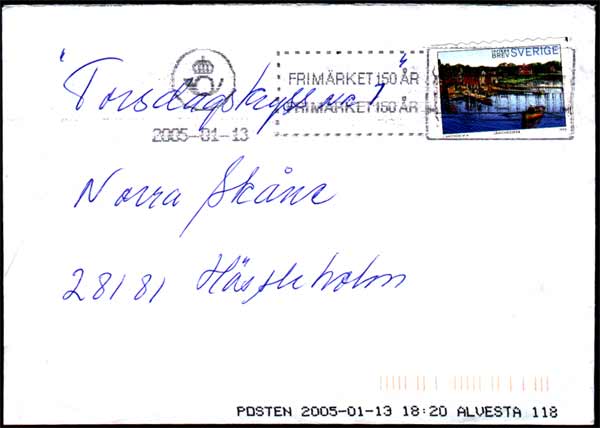 BREV SVERIGE
FRIMÄRKET 150 ÅR
"Torsdagskryss nr 1"
FRIMÄRKET 150 ÅR
2005-01-13
Norra Skåne
28181 Hässleholm
POSTEN 2005-01-13 18:20 ALVESTA 118